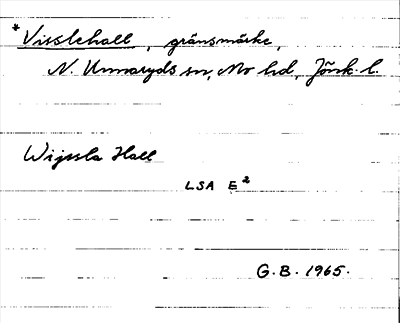 *Visslehall, gränsmärke,
N. Unnaryds sn, Mo hd, Jönk. l.
Wijssla Hall
LSA E²
G.B. 1965.